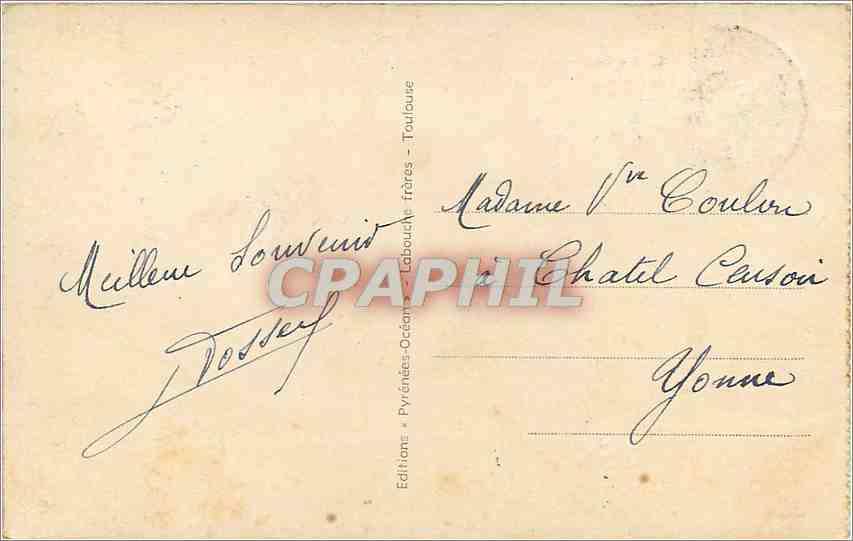 Meilleur Souvenir
Editions « Pyrénées-Océan » - Labouche frères - Toulouse
Madame Vve Coulon
à Chatel Censoir
Yonne
CPAPHIL